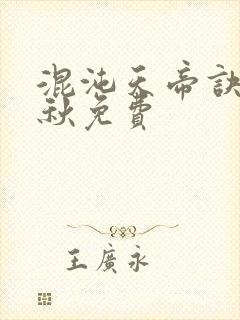 混沌天帝訣
秋免費
王廣永